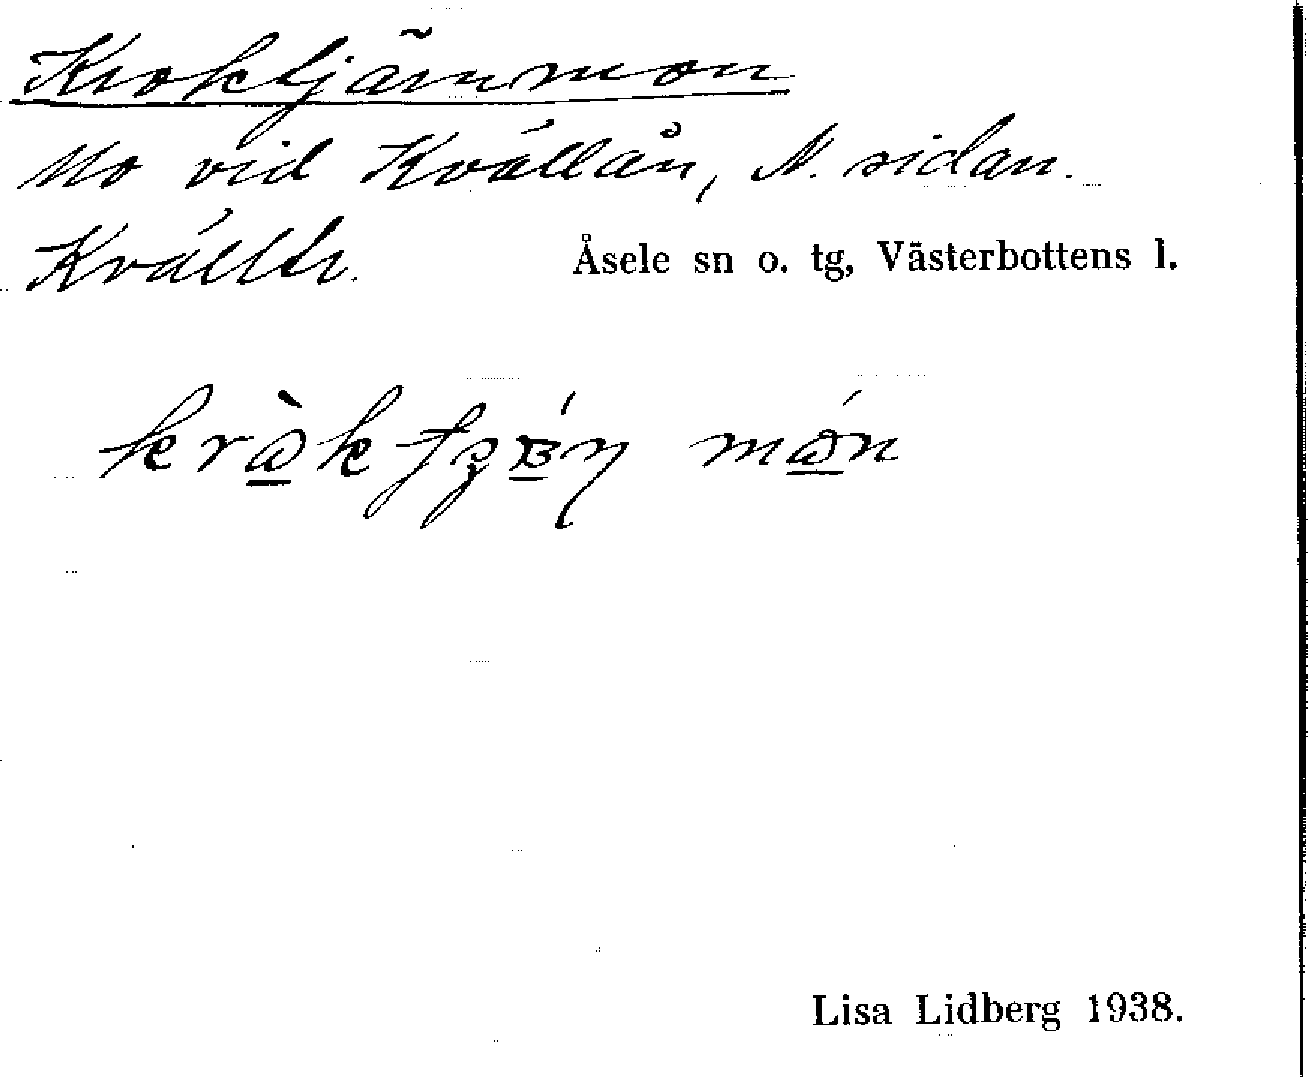 Kroktjärnmon
Mo vid Kvällån, N. sidan.
Kvälltr. Åsele sn o. tg, Västerbottens l.
món
Lisa Lidberg 1938.